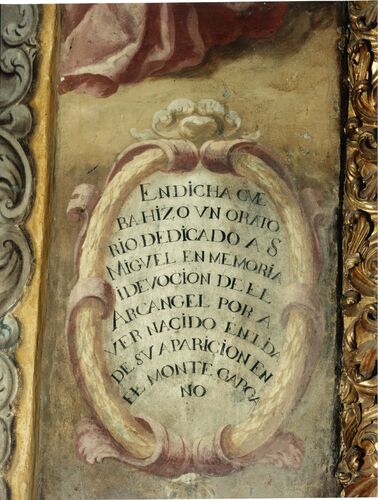 EN DICHA CVE
BA HIZO VN ORATO
RIO DEDICADO A S
MIGVEL EN MEMORIA
I DEVOCION DE EL
ARCANGEL POR A
VER NACIDO EN EL DIA
DE SV APARICION EN
EL MONTE GARGA
NO